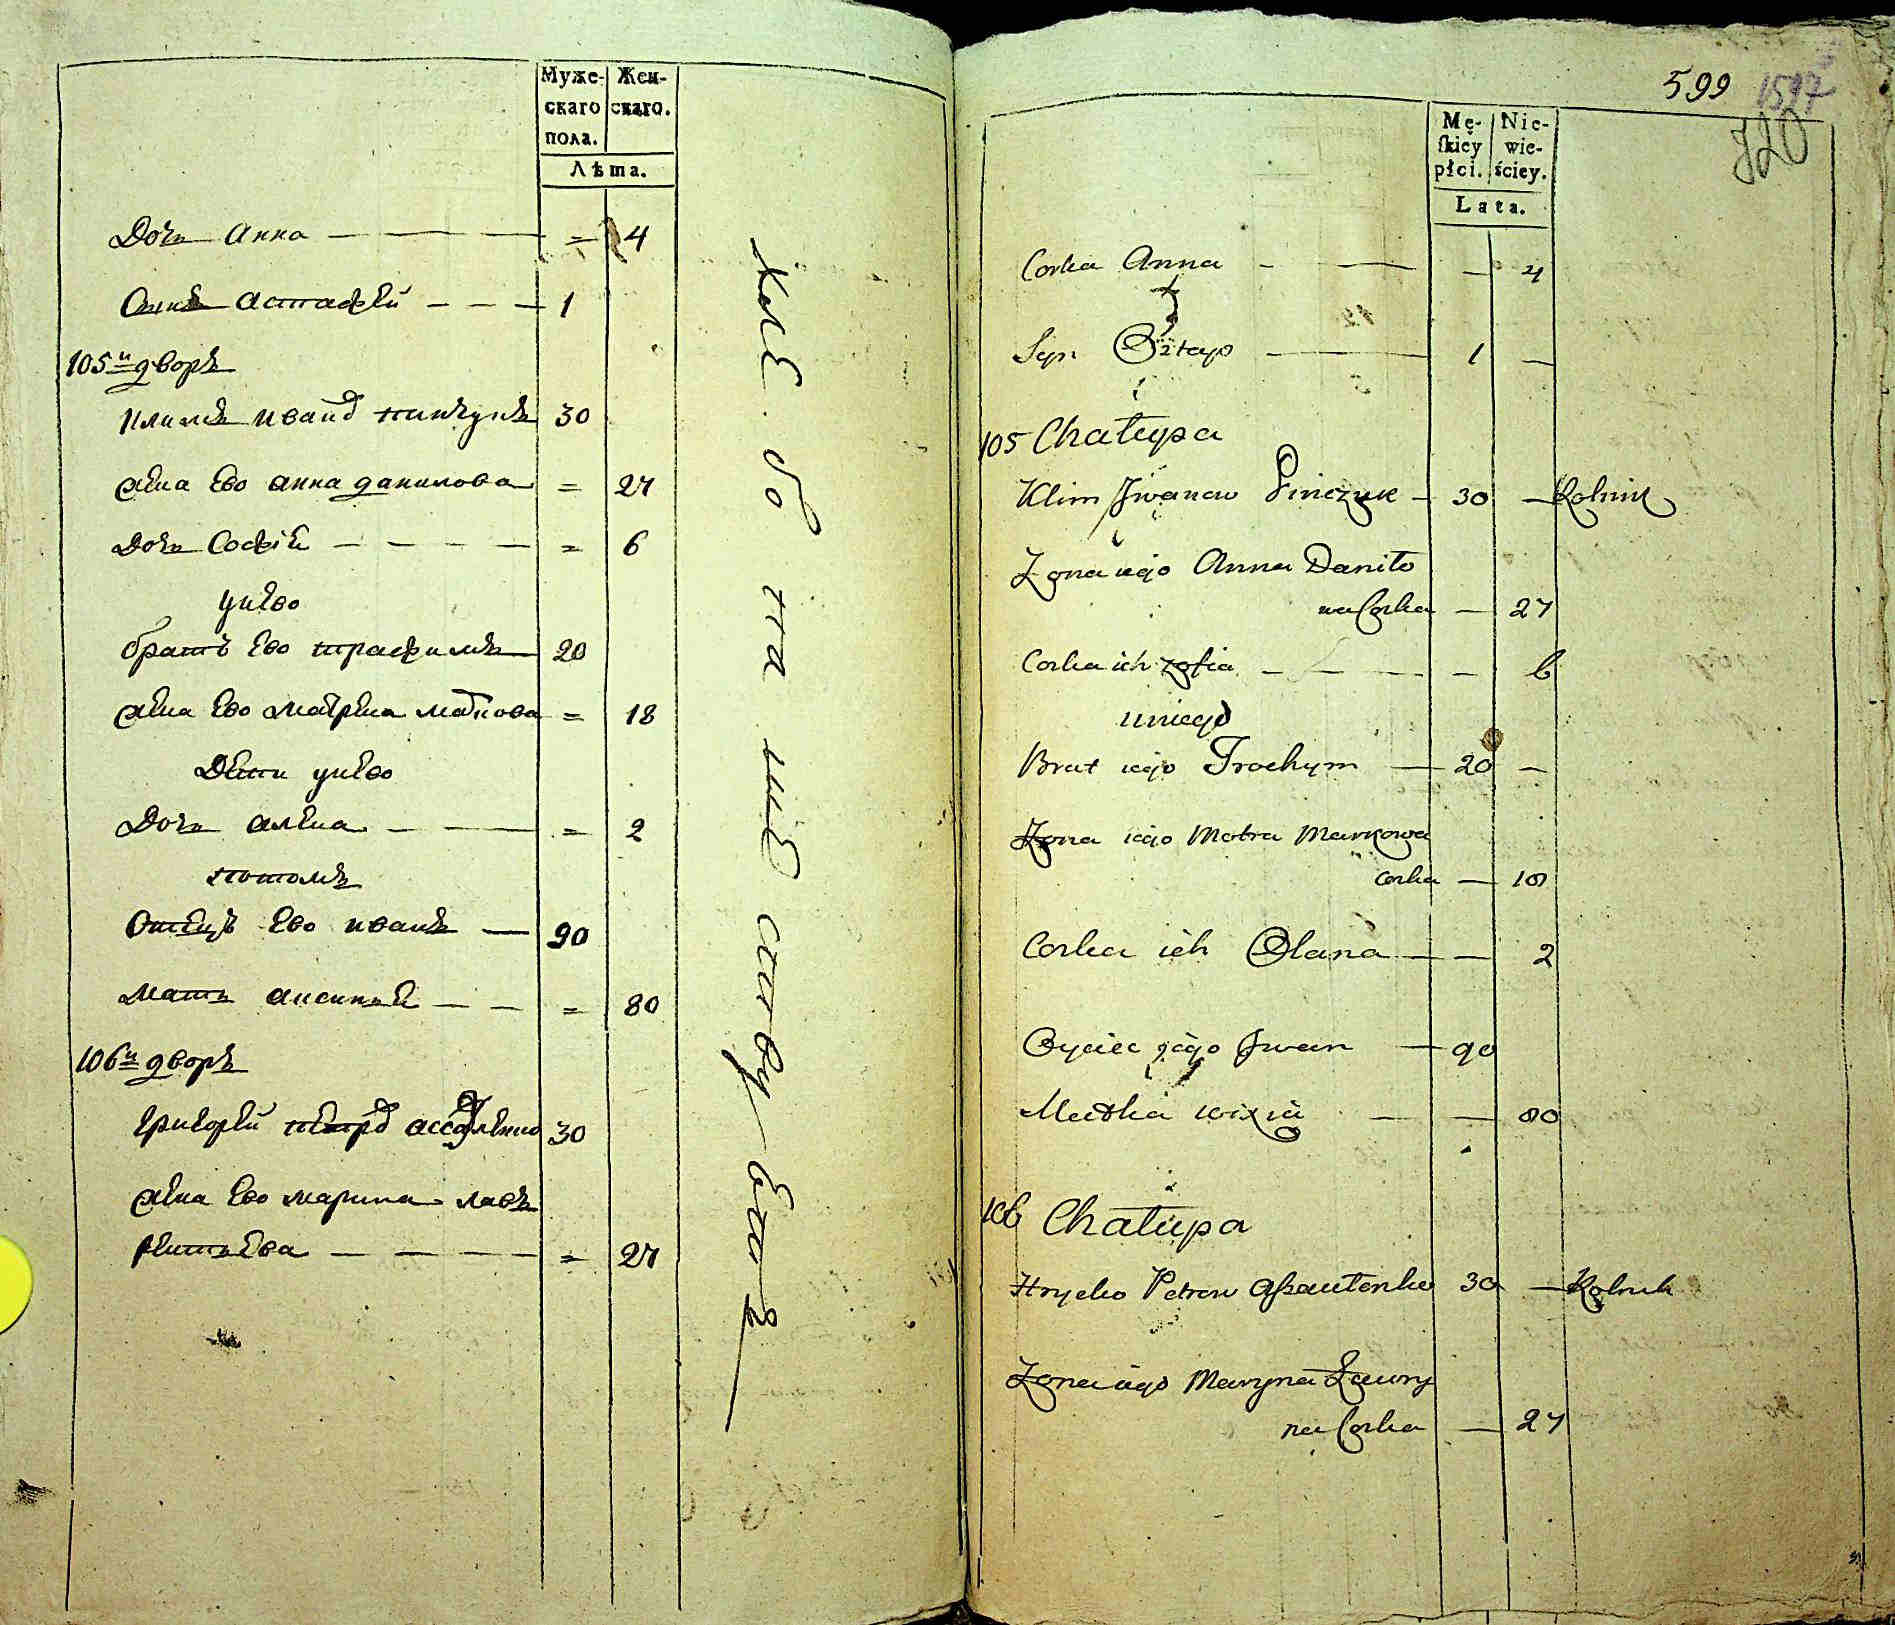 Муже- Жен-
скаго скаго.
пола.
Лѣта.
Дочь Анна — — — = 4
Сынъ Астафей — — — 1
105й дворъ
Климъ Иванд Пинчукъ 30
Жена Ево Анна Данилова = 27
Дочь Софія — — — — = 6
У нево
братъ Ево Трафимъ 20
Жена Ево Матрена Маркова = 18
Дети у нево
Дочь Алена — — = 2
Потомъ
Отецъ Ево Иванъ — 90
Мать Аксинья — — = 80
106й дворъ
Григорей Петрд 30
Жена Ево Марина Лавъ
рентьева — — — — = 27
599
720
Mę- Nie-
skiey wie-
płci. ściey.
Lata.
Corka Anna — — — 4
Syn Ostap — 1 —
105 Chałupa
Klim Iwanow Pinczuk — 30 — Rolnik
Zona iego Anna Daniło
wa Corka — 27
Corka ich Zofia — — — — 6
u niego
Brat iego Trochym — 20 —
Zona iego Motra Markowa
Corka — 18
Corka ich Olana — — 2
Oyciec iego Iwan — 90
Matka — — 80
106 Chałupa
Hryćko Petrow 30 — Rolnik
Zona iego Maryna Ławry
na Corka — 27